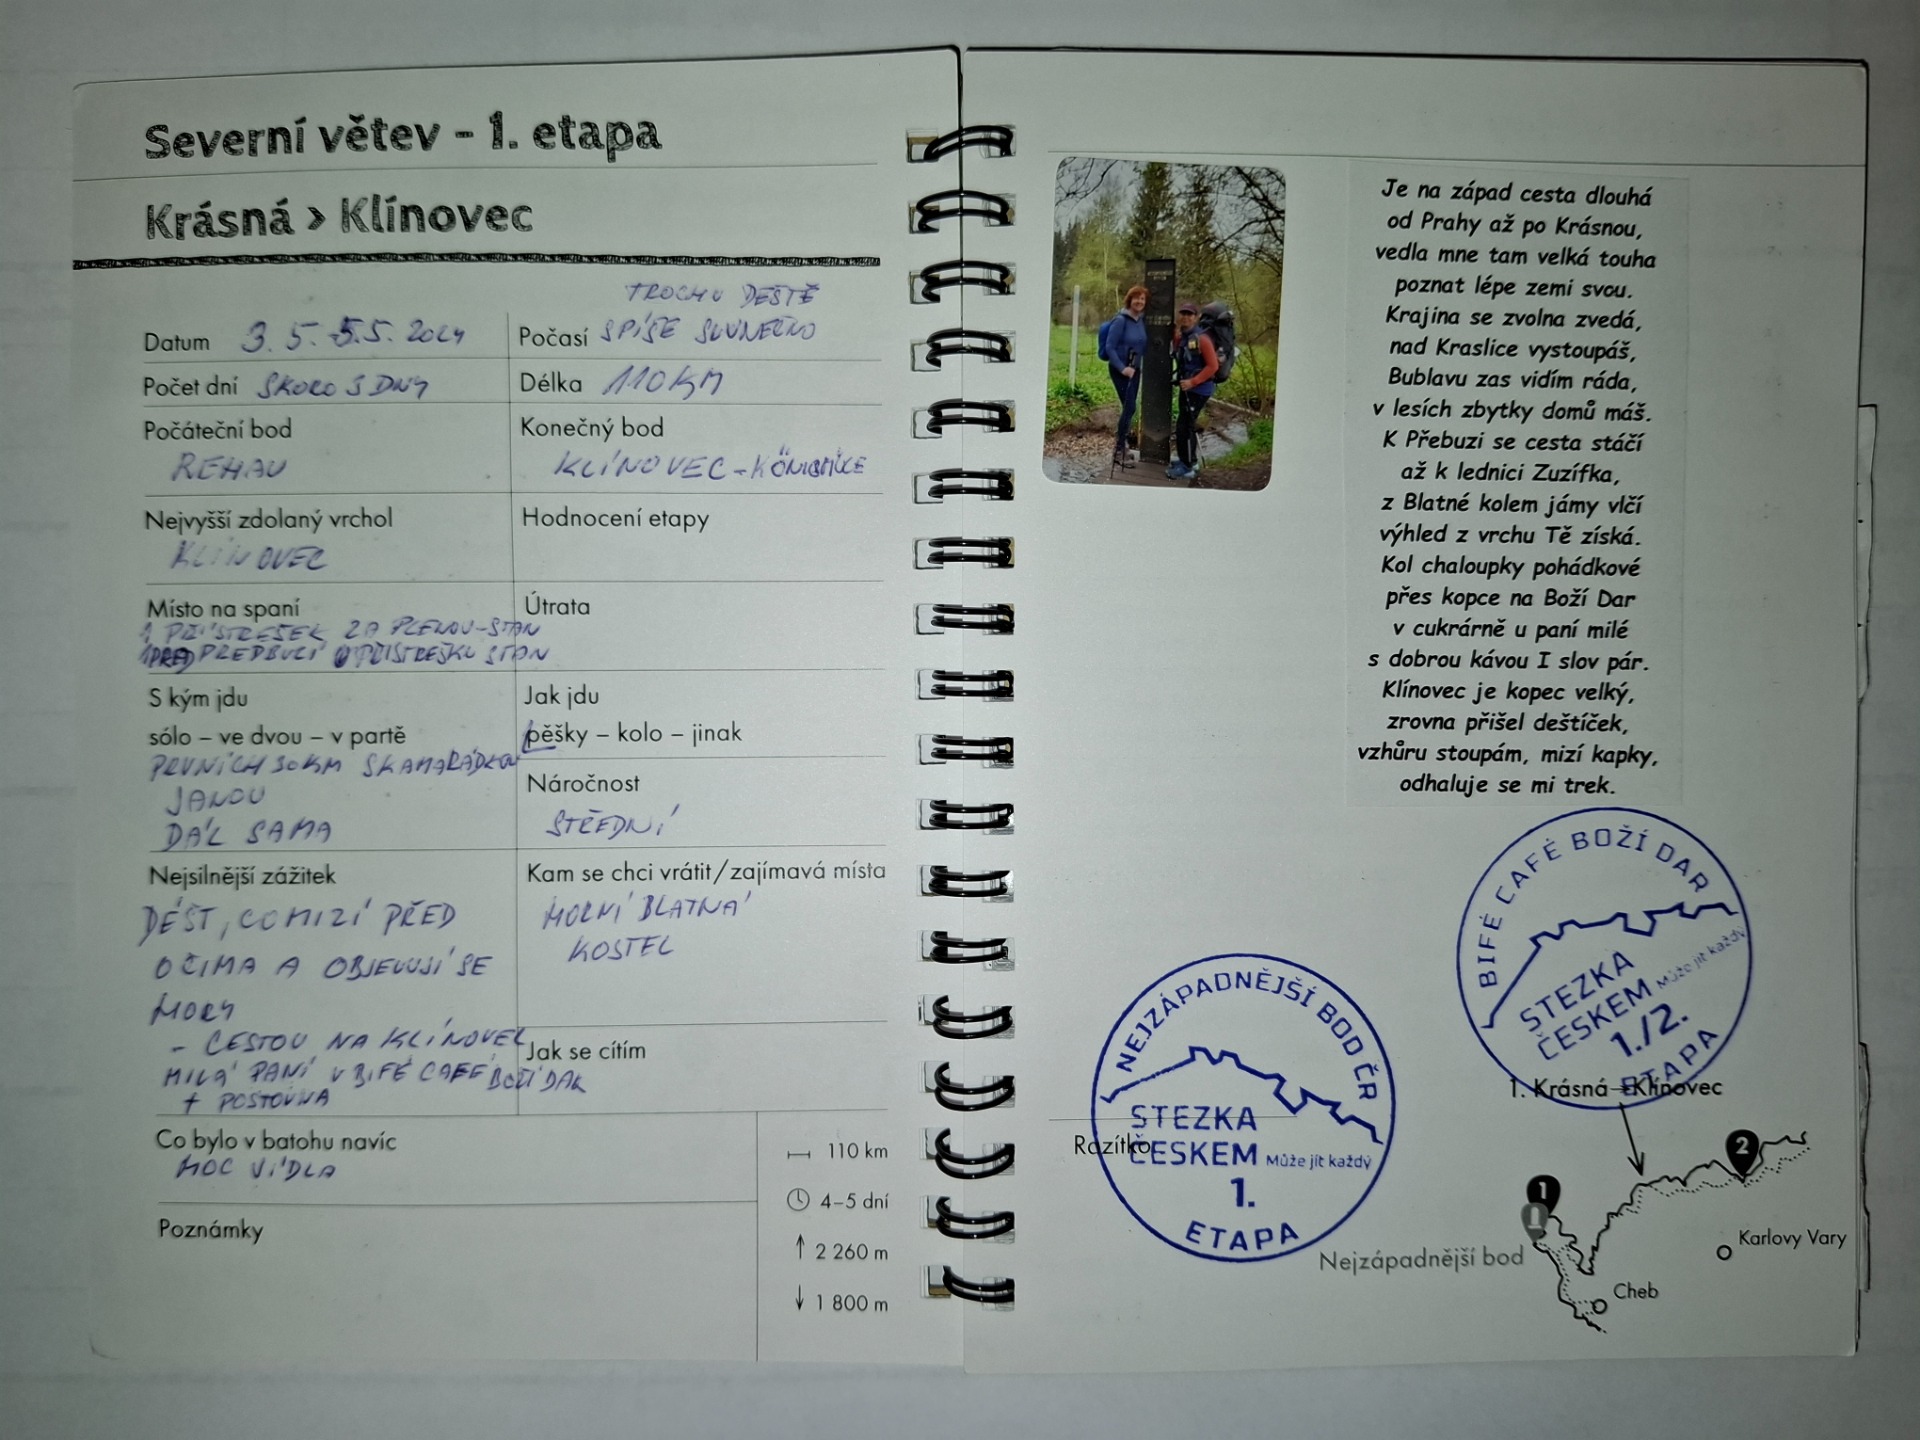 Severní větev – 1. etapa
Krásná > Klínovec
TROCHU DEŠTĚ
Datum 3. 5. - 5.5. 2024
Počasí SPÍŠE SLUNEČNO
Počet dní SKORO 3 DNY
Délka 110 KM
Počáteční bod
REHAU
Konečný bod
KLÍNOVEC -
Nejvyšší zdolaný vrchol
KLÍNOVEC
Hodnocení etapy
Místo na spaní
1 PŘÍSTŘEŠEK ZA PLENOU-STAN
PŘEDBUCÍ PŘÍSTŘEŠKU STAN
Útrata
S kým jdu
sólo – ve dvou – v partě
PRVNÍCH 30KM S KAMARÁDKOU
JANOU
DÁL SAMA
Jak jdu
pěšky – kolo – jinak
Náročnost
STŘEDNÍ
Nejsilnější zážitek
DÉŠŤ, CO MIZÍ PŘED
OČIMA A OBJEVUJÍ SE
HORY
- CESTOU NA KLÍNOVEC
MILÁ PANÍ V BIFÉ CAFÉ BOŽÍ DAR
+ POŠTOVNA
Kam se chci vrátit/zajímavá místa
HORNÍ BLATNÁ
KOSTEL
Jak se cítím
Co bylo v batohu navíc
MOC JÍDLA
Poznámky
110 km
4–5 dní
2 260 m
1 800 m
Je na západ cesta dlouhá
od Prahy až po Krásnou,
vedla mne tam velká touha
poznat lépe zemi svou.
Krajina se zvolna zvedá,
nad Kraslice vystoupáš,
Bublavu zas vidím ráda,
v lesích zbytky domů máš.
K Přebuzi se cesta stáčí
až k lednici Zuzífka,
z Blatné kolem jámy vlčí
výhled z vrchu Tě získá.
Kol chaloupky pohádkové
přes kopce na Boží Dar
v cukrárně u paní milé
s dobrou kávou I slov pár.
Klínovec je kopec velký,
zrovna přišel deštíček,
vzhůru stoupám, mizí kapky,
odhaluje se mi trek.
BIFÉ CAFÉ BOŽÍ DAR
STEZKA
ČESKEM Může jít každý
1./2.
ETAPA
NEJZÁPADNĚJŠÍ BOD ČR
STEZKA
ČESKEM Může jít každý
1.
ETAPA
Razítko
1. Krásná → Klínovec
2
1
Karlovy Vary
Nejzápadnější bod
Cheb